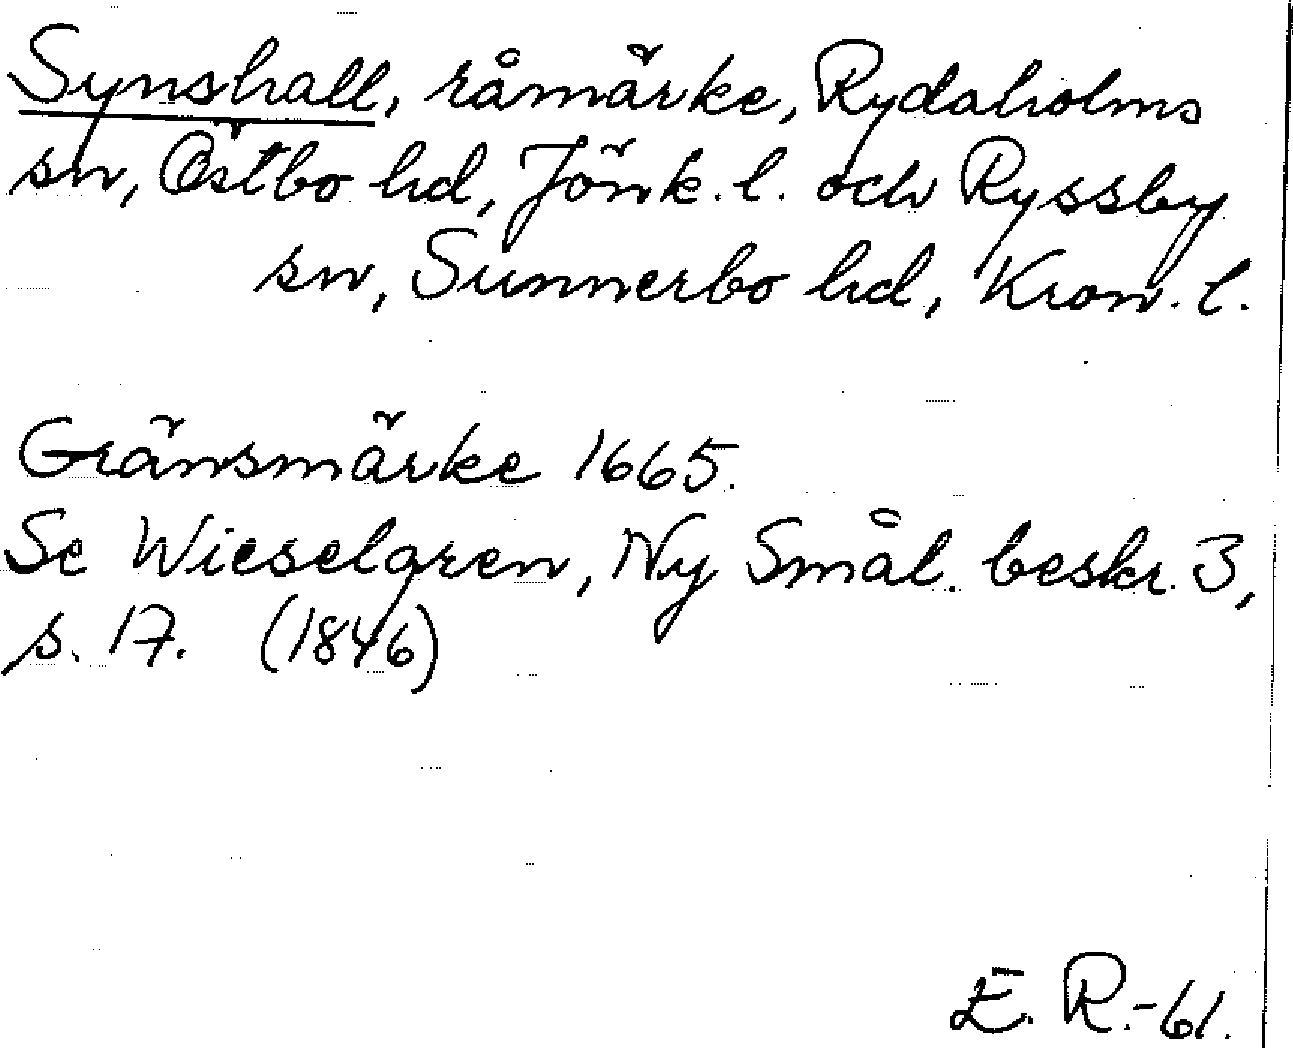 Synshall, råmärke, Rydaholms
sn, Östbo hd, Jönk. l. och Ryssby
sn, Sunnerbo hd, Kron. l.
Gränsmärke 1665.
Se Wieselgren, Ny Smål. beskr. 3,
s. 17. (1846)
E. R.-61.